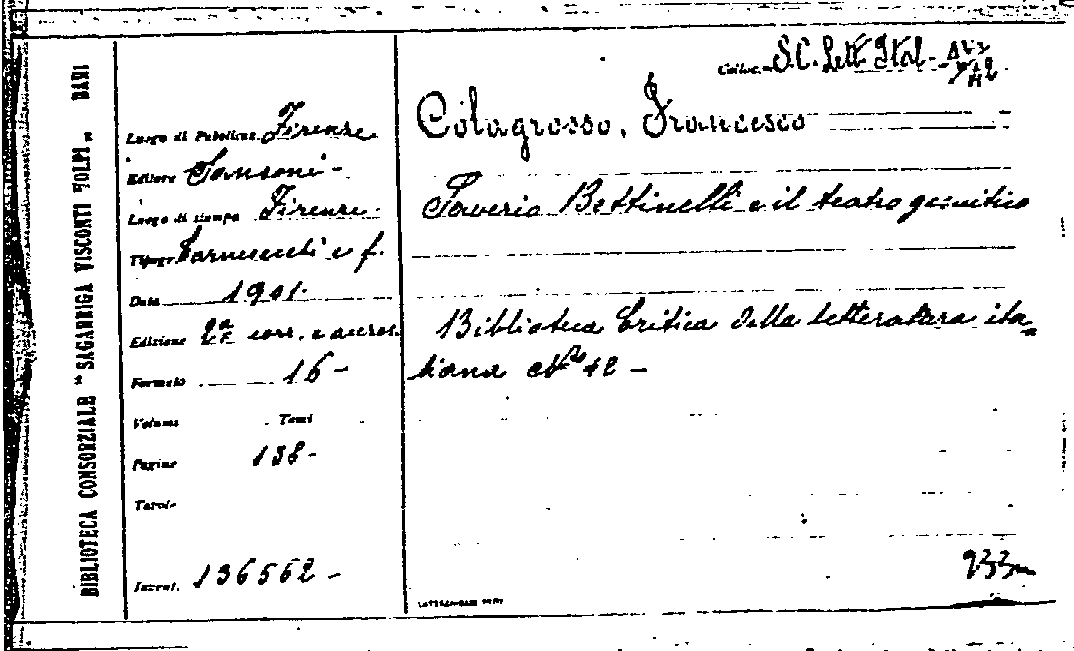 BIBLIOTECA CONSORZIALE "SAGARRIGA VISCONTI VOLPI" BARI
Colloc. S.C. Lett. Ital.
Luogo di Pubblicaz. Firenze
Editore Sansoni -
Luogo di stampa Firenze.
Tipogr. Carnesecchi e f.
Data 1901.
Edizione 2ª corr. e accres.
Formato 16 -
Volumi Tomi
Pagine 138 -
Tavole
Invent. 136562 -
Colagrosso, Francesco
Saverio Bettinelli e il teatro gesuitico
Biblioteca Critica della letteratura ita=
liana N.ro 42 -